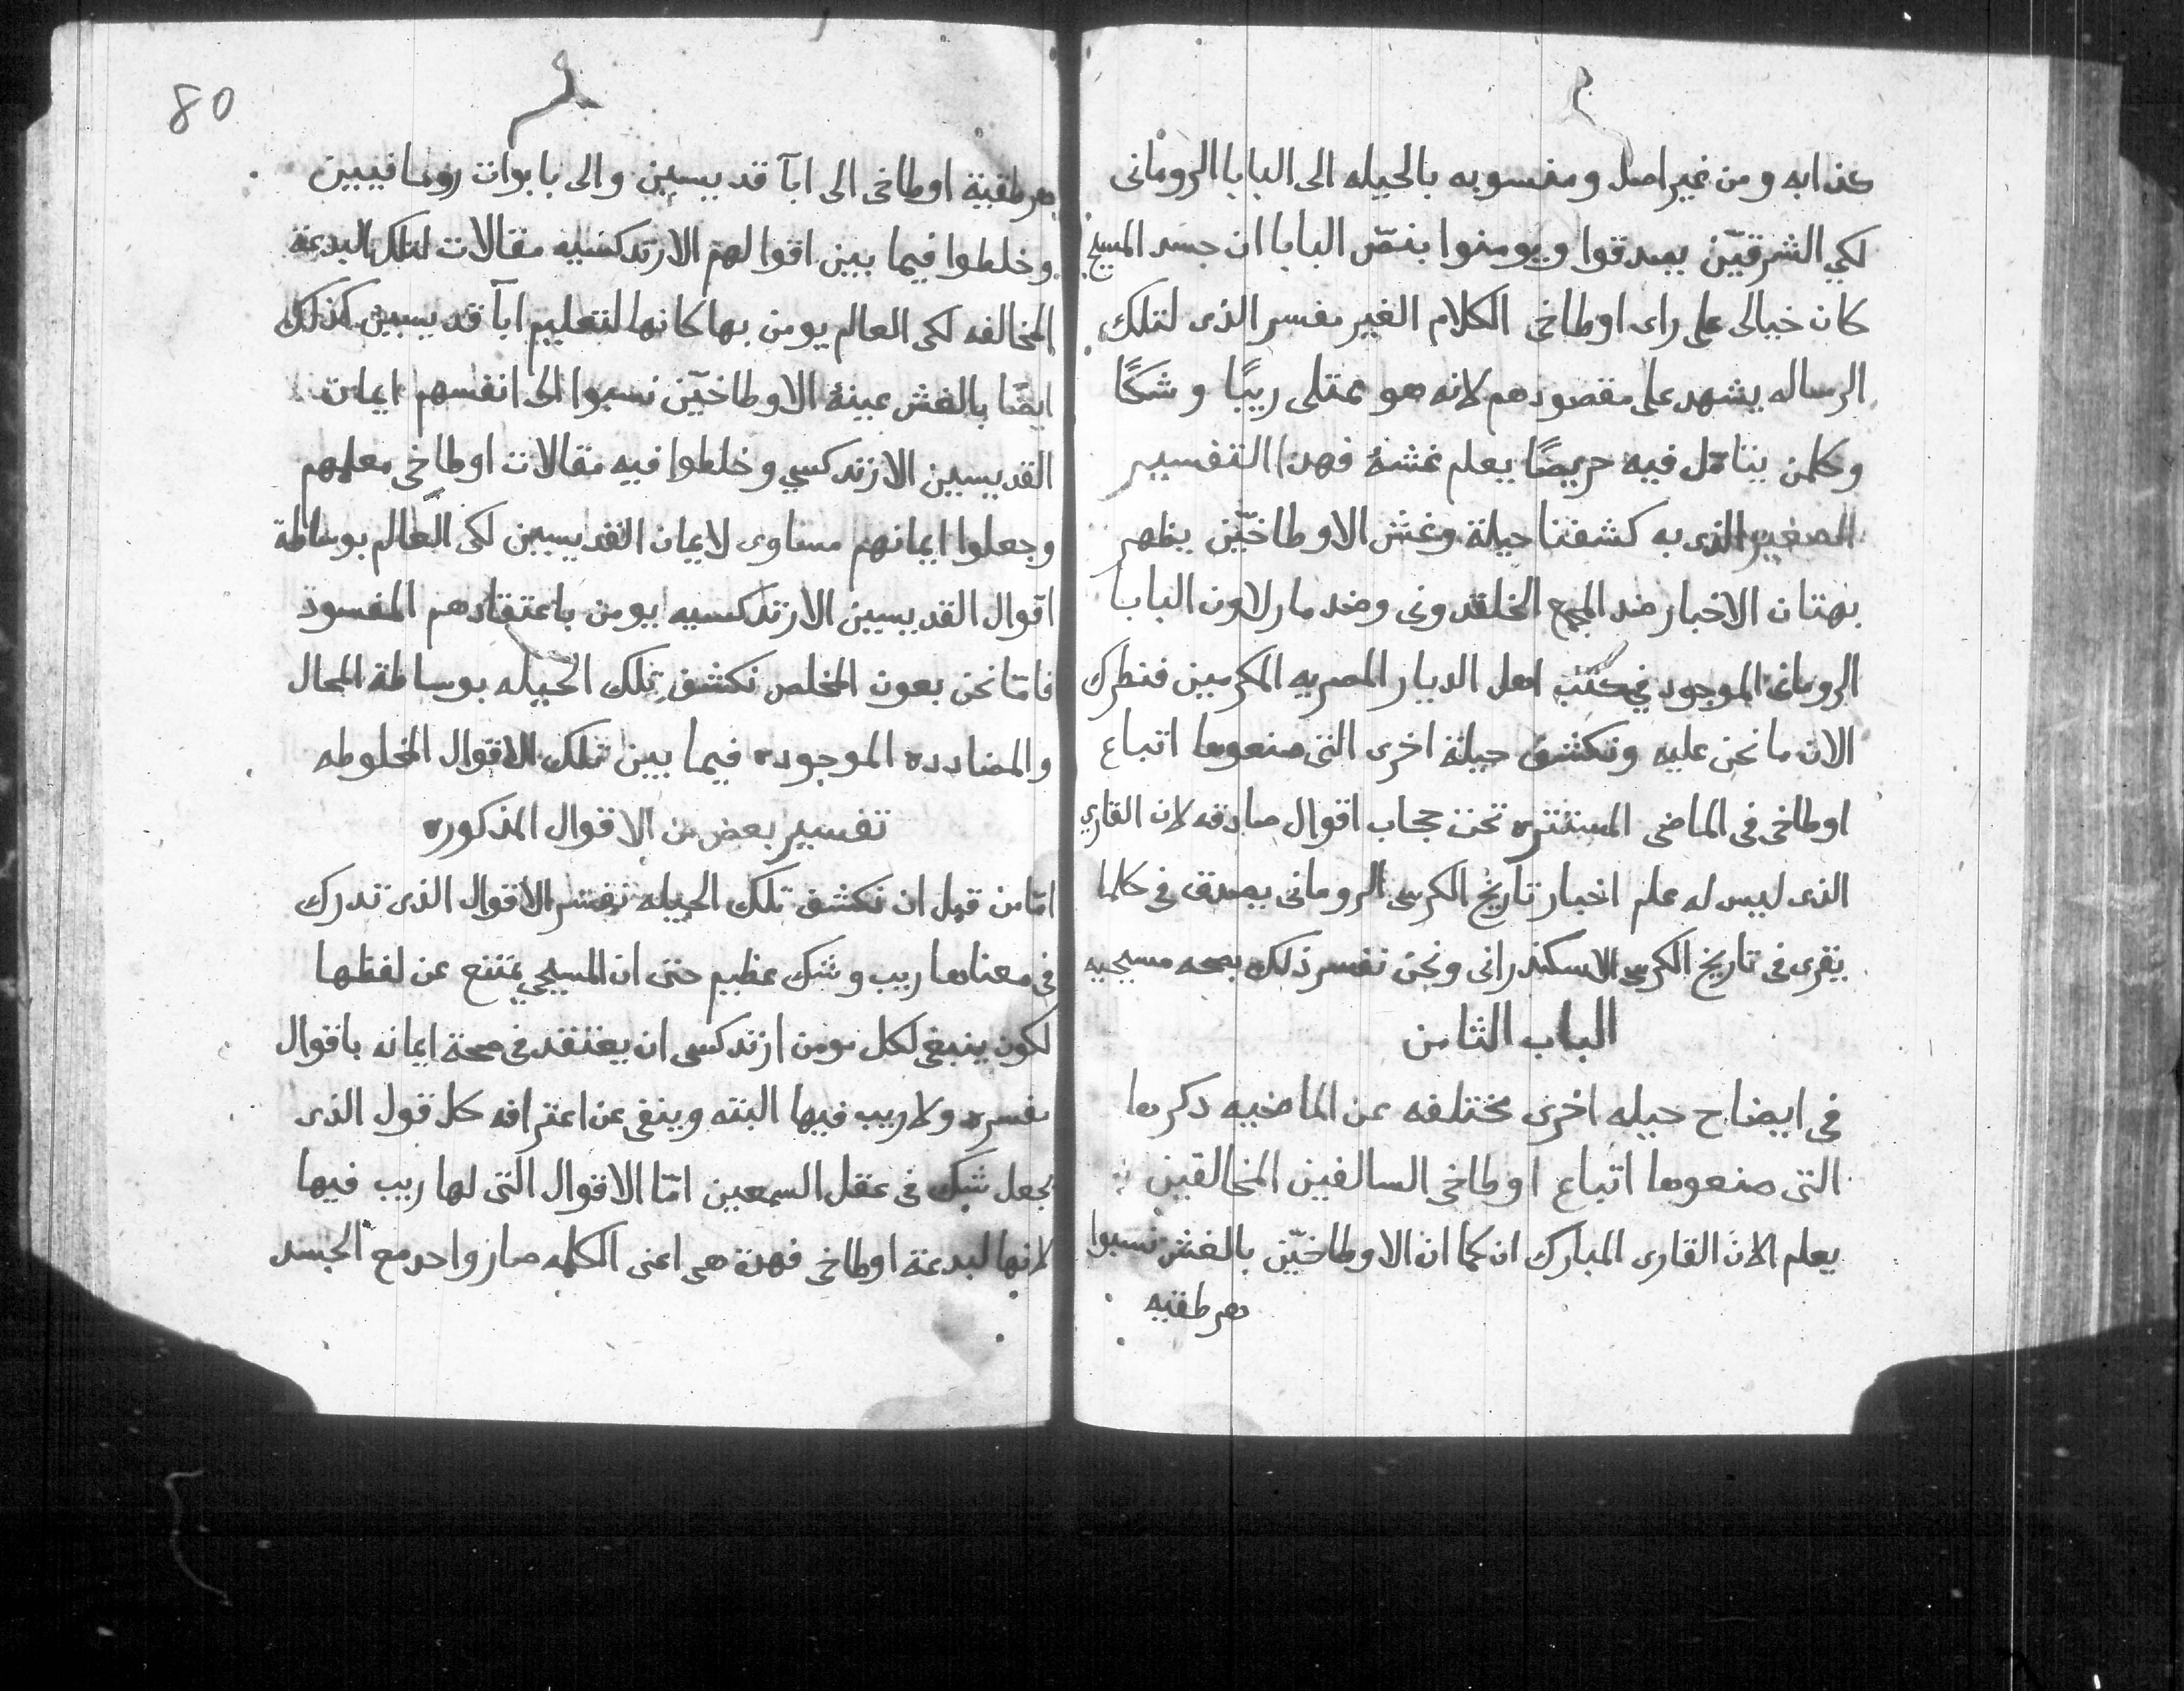 كذابه ومن غير اصل ومنسوبه بالحيله الى البابا الرومانى
لكي الشرقيّن يصدقوا ويومنوا بنصّ البابا ان جسد المسيح
كان خيالى على راى اوطاخى الكلام الغير مفسر الذى لتلك
الرساله يشهد على مقصودهم لانه هو ممتلى ريبًا وشكًا
وكلمن يتامّل فيه حريصًا يعلم غشهٔ فهدا التفسير
الصغير الذى به كشفنا حيلة وغش الاوطاخيّن يظهر
بهتان الاخبار ضد المجمع الخلقدونى وضد مار لاون البابا
الرومانى الموجود في كتب اهل الديار المصريه المكرمين فنطرك
الان ما نحن عليه ونكشف حيلة اخرى التى صنعوها اتباع
اوطاخى فى الماضى المستتره تحت حجاب اقوال صادقه لان القاري
الذى ليس له علم اخبار تاريخ الكرسى الرومانى يصدق فى كلما
يقرى فى تاريخ الكرسى الاسكندرانى ونحن نفسر ذلك بمحه مسيحيه
الباب الثامن
فى ايضاح حيله اخرى مختلفه عن الماضيه دكرها
التى صنعوها اتباع اوطاخى السالفين المخالفين
يعلم الان القارى المبارك ان كما ان الاوطاخيّن بالغش نسبوا
هرطقيه
80
هرطقية اوطاخى الى ابآ قديسين والى بابوات رومانيين
وخلطوا فيما بين اقوالهم الارتدكسيه مقالات لتلك البدعة
المخالفه لكى العالم يومن بها كانها لتعليم ابآ قديسين كذلك
ايضًا بالغش عينهٔ الاوطاخيّن نسبوا الى انفسهم ايمان
القديسين الارتدكسي وخلطوا فيه مقالات اوطاخى معلمهم
وجعلوا ايمانهم مساوى لايمان القديسين لكى العالم بوساطة
اقوال القديسين الارتدكسيه يومن باعتقادهم المفسود
فامّا نحن بعون المخلص نكشف تلك الحيله بوساطة المحال
والمضادده الموجوده فيما بين تلك الاقوال المخلوطه
تفسير بعض من الاقوال المذكوره
امّا من قبل ان نكشف تلك الحيله نفسّر الاقوال الذى تدرك
فى معناها ريب وشك عظيم حتى ان المسيحي يمتنع عن لفظها
لكون ينبغى لكل مومن ارتدكسى ان يعتقد فى صحة ايمانه باقوال
مفسره ولا ريب فيها البته وينفى عن اعترافه كل قول الذى
يجعل شك فى عقل السمعين امّا الاقوال التى لها ريب فيها
لانها لبدعة اوطاخى فهدة هى اعنى الكلمه صار واحد مع الجسد